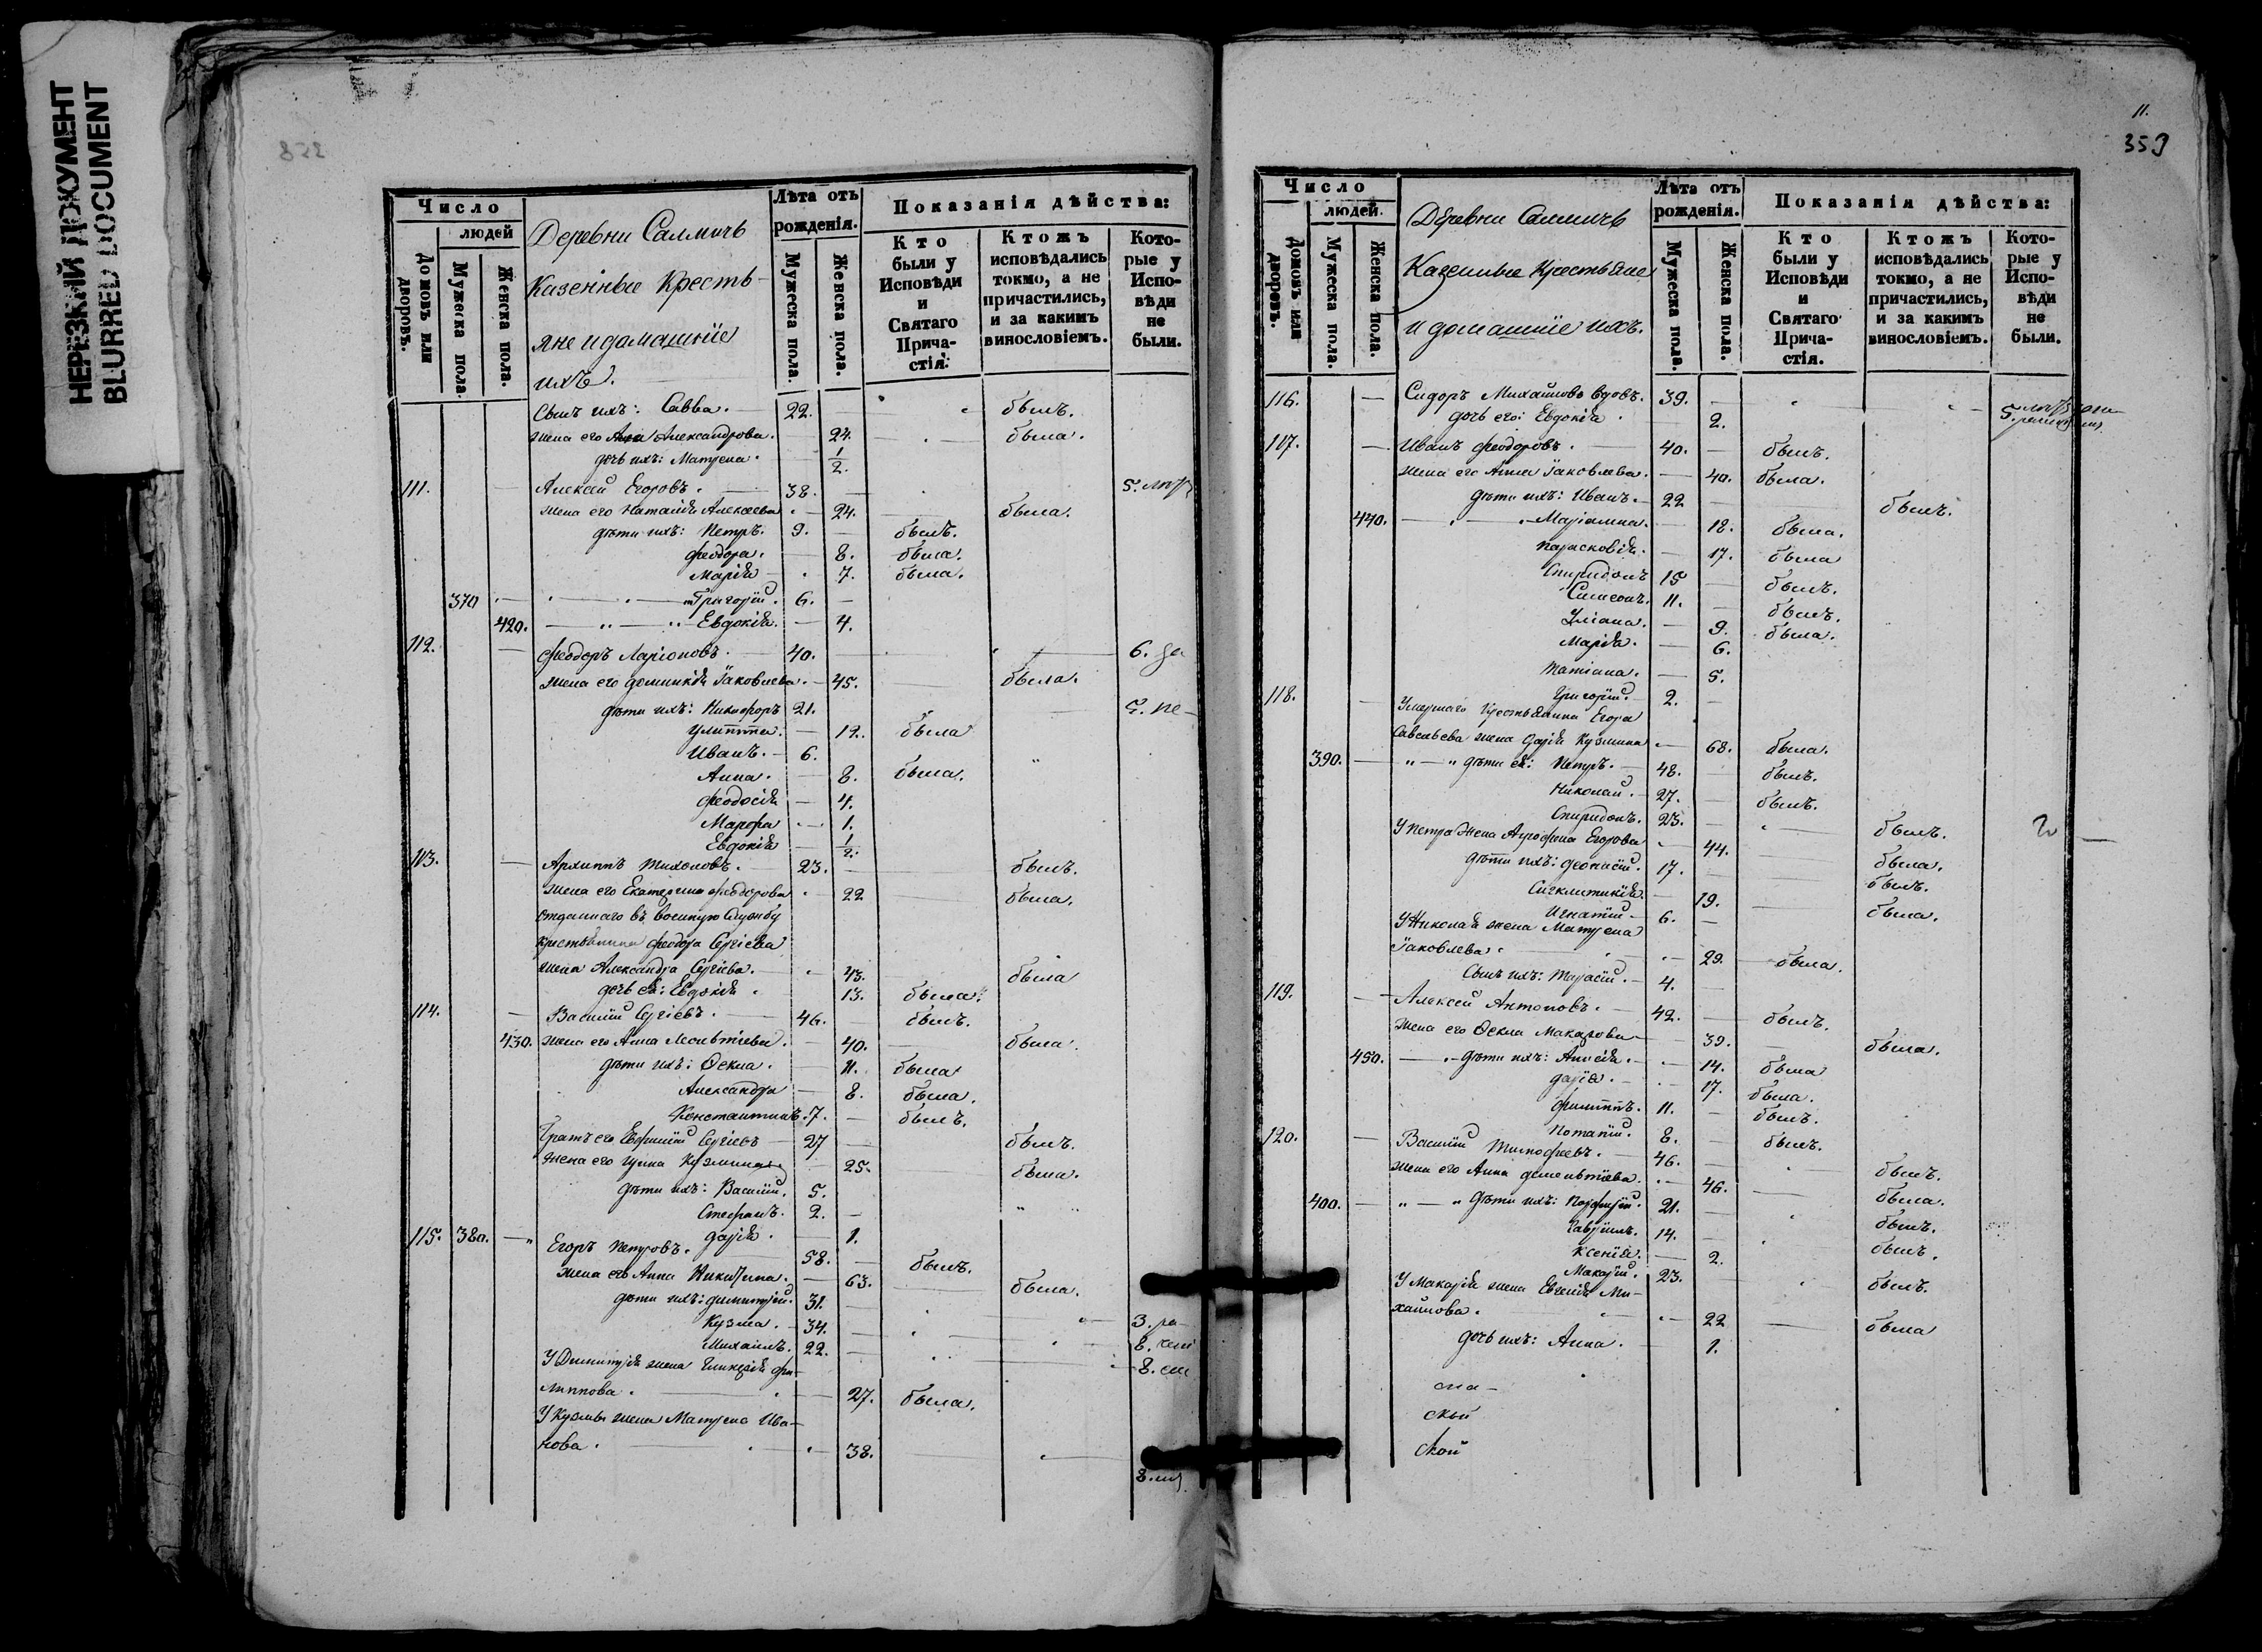 НЕРЕЗКИЙ ДОКУМЕНТ
BLURRED DOCUMENT
822
Число
людей
Домовъ или дворовъ.
Мужеска пола.
Женска пола.
Деревни Саммичь
Казенные Кресть-
яне и домашніе
ихъ.
Лѣта отъ рожденія.
Мужеска пола.
Женска пола.
Показанія дѣйства:
Кто были у Исповѣди и Святаго Прича-стія.
Ктожъ исповѣдались токмо, а не причастились, и за какимъ винословіемъ.
Кото-рые у Испо-вѣди не были.
Сынъ ихъ: Савва. 22. былъ.
жена его Анна Александрова. 24. была.
дочь ихъ: Матрена. 1/2.
111. Алексѣй Егоровъ. 38. 5.
жена его Наталія Алексѣева 24. была.
дѣти ихъ: Петръ. 9. былъ.
Феодора. 8. была.
Марія 7. была.
370 Григорій. 6.
420. Евдокія. 4.
112. Феодоръ Ларіоновъ. 40. 6.
жена его Домникія Яковлева. 45. была.
дѣти ихъ: Никифоръ 21. 5. не
Улитта. 12. была
Иванъ. 6.
Анна. 8. была.
Феодосія 4.
Марфа 1.
Евдокія 1/2.
113. Архиппъ Тихоновъ. 23. былъ.
жена его Екатерина Феодорова 22 была.
Отданнаго въ военную службу
крестьянина Феодора Сергіева
жена Александра Сергіева. 43. была
дочь ея: Евдокія. 13. была.
114. Василій Сергіевъ. 46. былъ.
430. жена его Анна Леонтіева. 40. была.
дѣти ихъ: Ѳекла. 11. была
Александра 8. была.
Константинъ. 7. былъ.
Братъ его Евфимій Сергіевъ 27 былъ.
жена его Ирина Кузмина. 25. была.
дѣти ихъ: Василій. 5.
Стефанъ. 2.
Дарія. 1.
115. 380. Егоръ Петровъ. 58. былъ.
жена его Анна Никитина. 63. была.
дѣти ихъ: Димитрій. 31. 3.
Кузма. 34. 8.
Михаилъ. 22. 8.
У Димитрія жена Гликерія Фи-
липпова. 27. была.
У Кузмы жена Матрена Ива-
нова. 38. 8.
11.
359
Число
людей.
Домовъ или дворовъ.
Мужеска пола.
Женска пола.
Деревни Саммичь
Казенные Крестьяне
и домашніе ихъ.
Лѣта отъ рожденія.
Мужеска пола.
Женска пола.
Показанія дѣйства:
Кто были у Исповѣди и Святаго Прича-стія.
Ктожъ исповѣдались токмо, а не причастились, и за какимъ винословіемъ.
Кото-рые у Испо-вѣди не были.
116. Сидоръ Михайловъ вдовъ. 39. 5.
дочь его: Евдокія. 2.
117. Иванъ Феодоровъ. 40. былъ.
жена его Анна Яковлева. 40. была.
дѣти ихъ: Иванъ. 22 былъ.
440. Маріамна. 18. была.
Парасковія. 17. была
Спиридонъ 15 былъ.
Симеонъ. 11. былъ.
Уліана. 9. была.
Марія. 6.
Татіана. 5.
Григорій. 2.
118. Умершаго крестьянина Егора
Савельева жена Дарія Кузмина 68. была.
390. дѣти ея: Петръ. 48. былъ.
Николай. 27. былъ.
Спиридонъ. 23. былъ.
У Петра жена Агрофена Егорова 44. была.
дѣти ихъ: Деонисій. 17. былъ.
Сигклитикія. 19. была.
Игнатій. 6.
У Николая жена Матрена
Яковлева. 29. была.
Сынъ ихъ: Тарасій. 4.
119. Алексей Антоновъ. 42. былъ.
жена его Ѳекла Макарова 39. была.
450. дѣти ихъ: Анисія. 14. была
Дарія. 17. была.
Филиппъ. 11. былъ.
Потапій. 8. былъ.
120. Василій Тимофеевъ. 46. былъ.
жена его Анна Дементіева. 46. была.
400. дѣти ихъ: Порфирій. 21. былъ.
Гавріилъ. 14. былъ.
Ксенія. 2.
Макарій. 23. былъ.
У Макарія жена Евгенія Ми-
хайлова. 22 была
дочь ихъ: Анна. 1.
ской